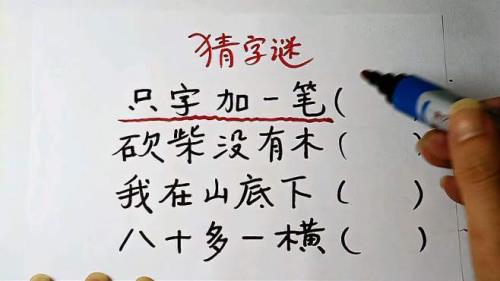 猜字谜
只字加一笔(    )
砍柴没有木(    )
我在山底下(    )
八十多一横(    )